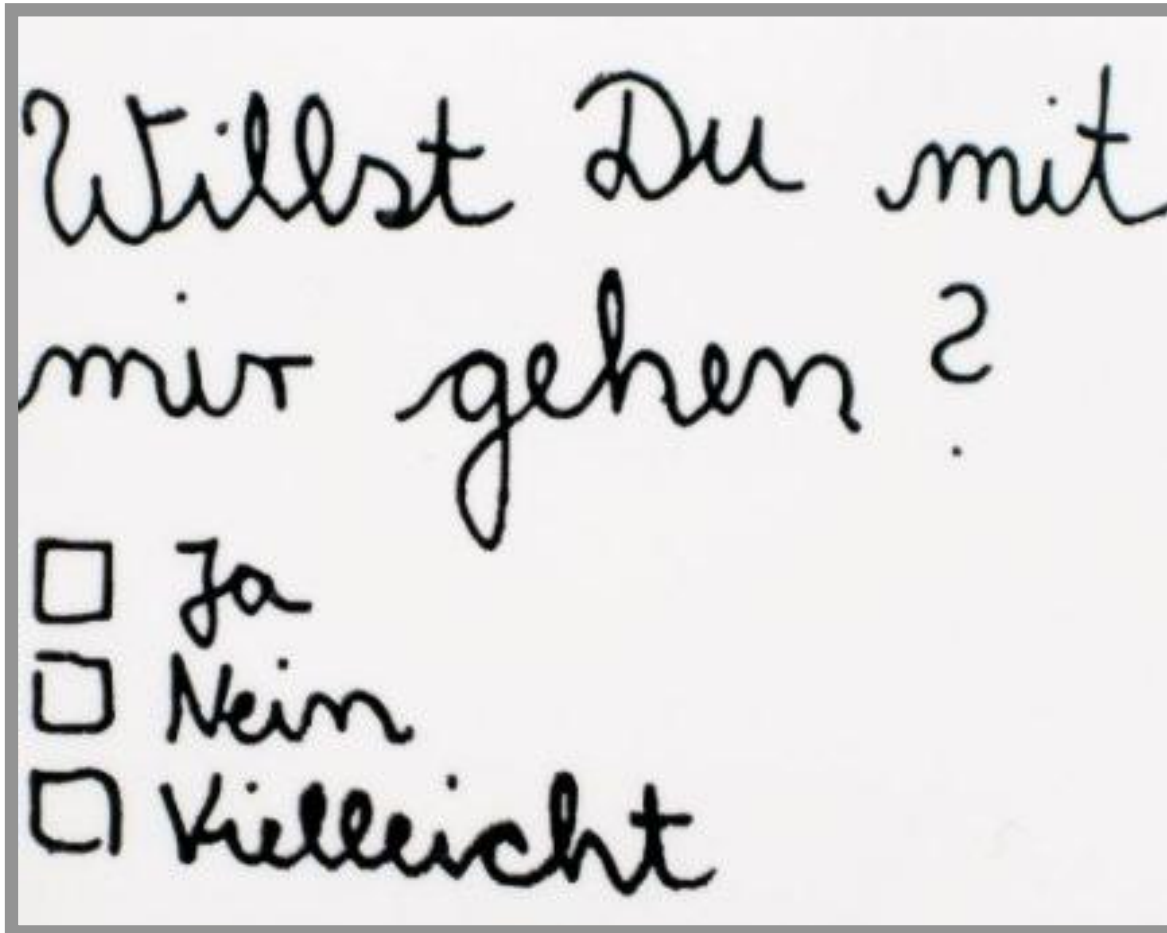 Willst Du mit
mir gehen?
Ja
Nein
Vielleicht